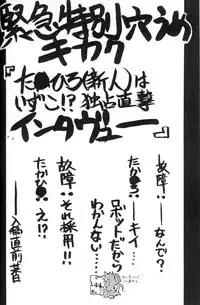 緊急特別穴うめ
キカク
『た●ひろ(新人)は
いずこ!? 独占直撃
インタヴュー』
故障!──なんで?
たか●ろ!──キイ…
ロボットだから
わかんない……
故障…それ採用!!
たかひ●…え!?
──入稿直前著